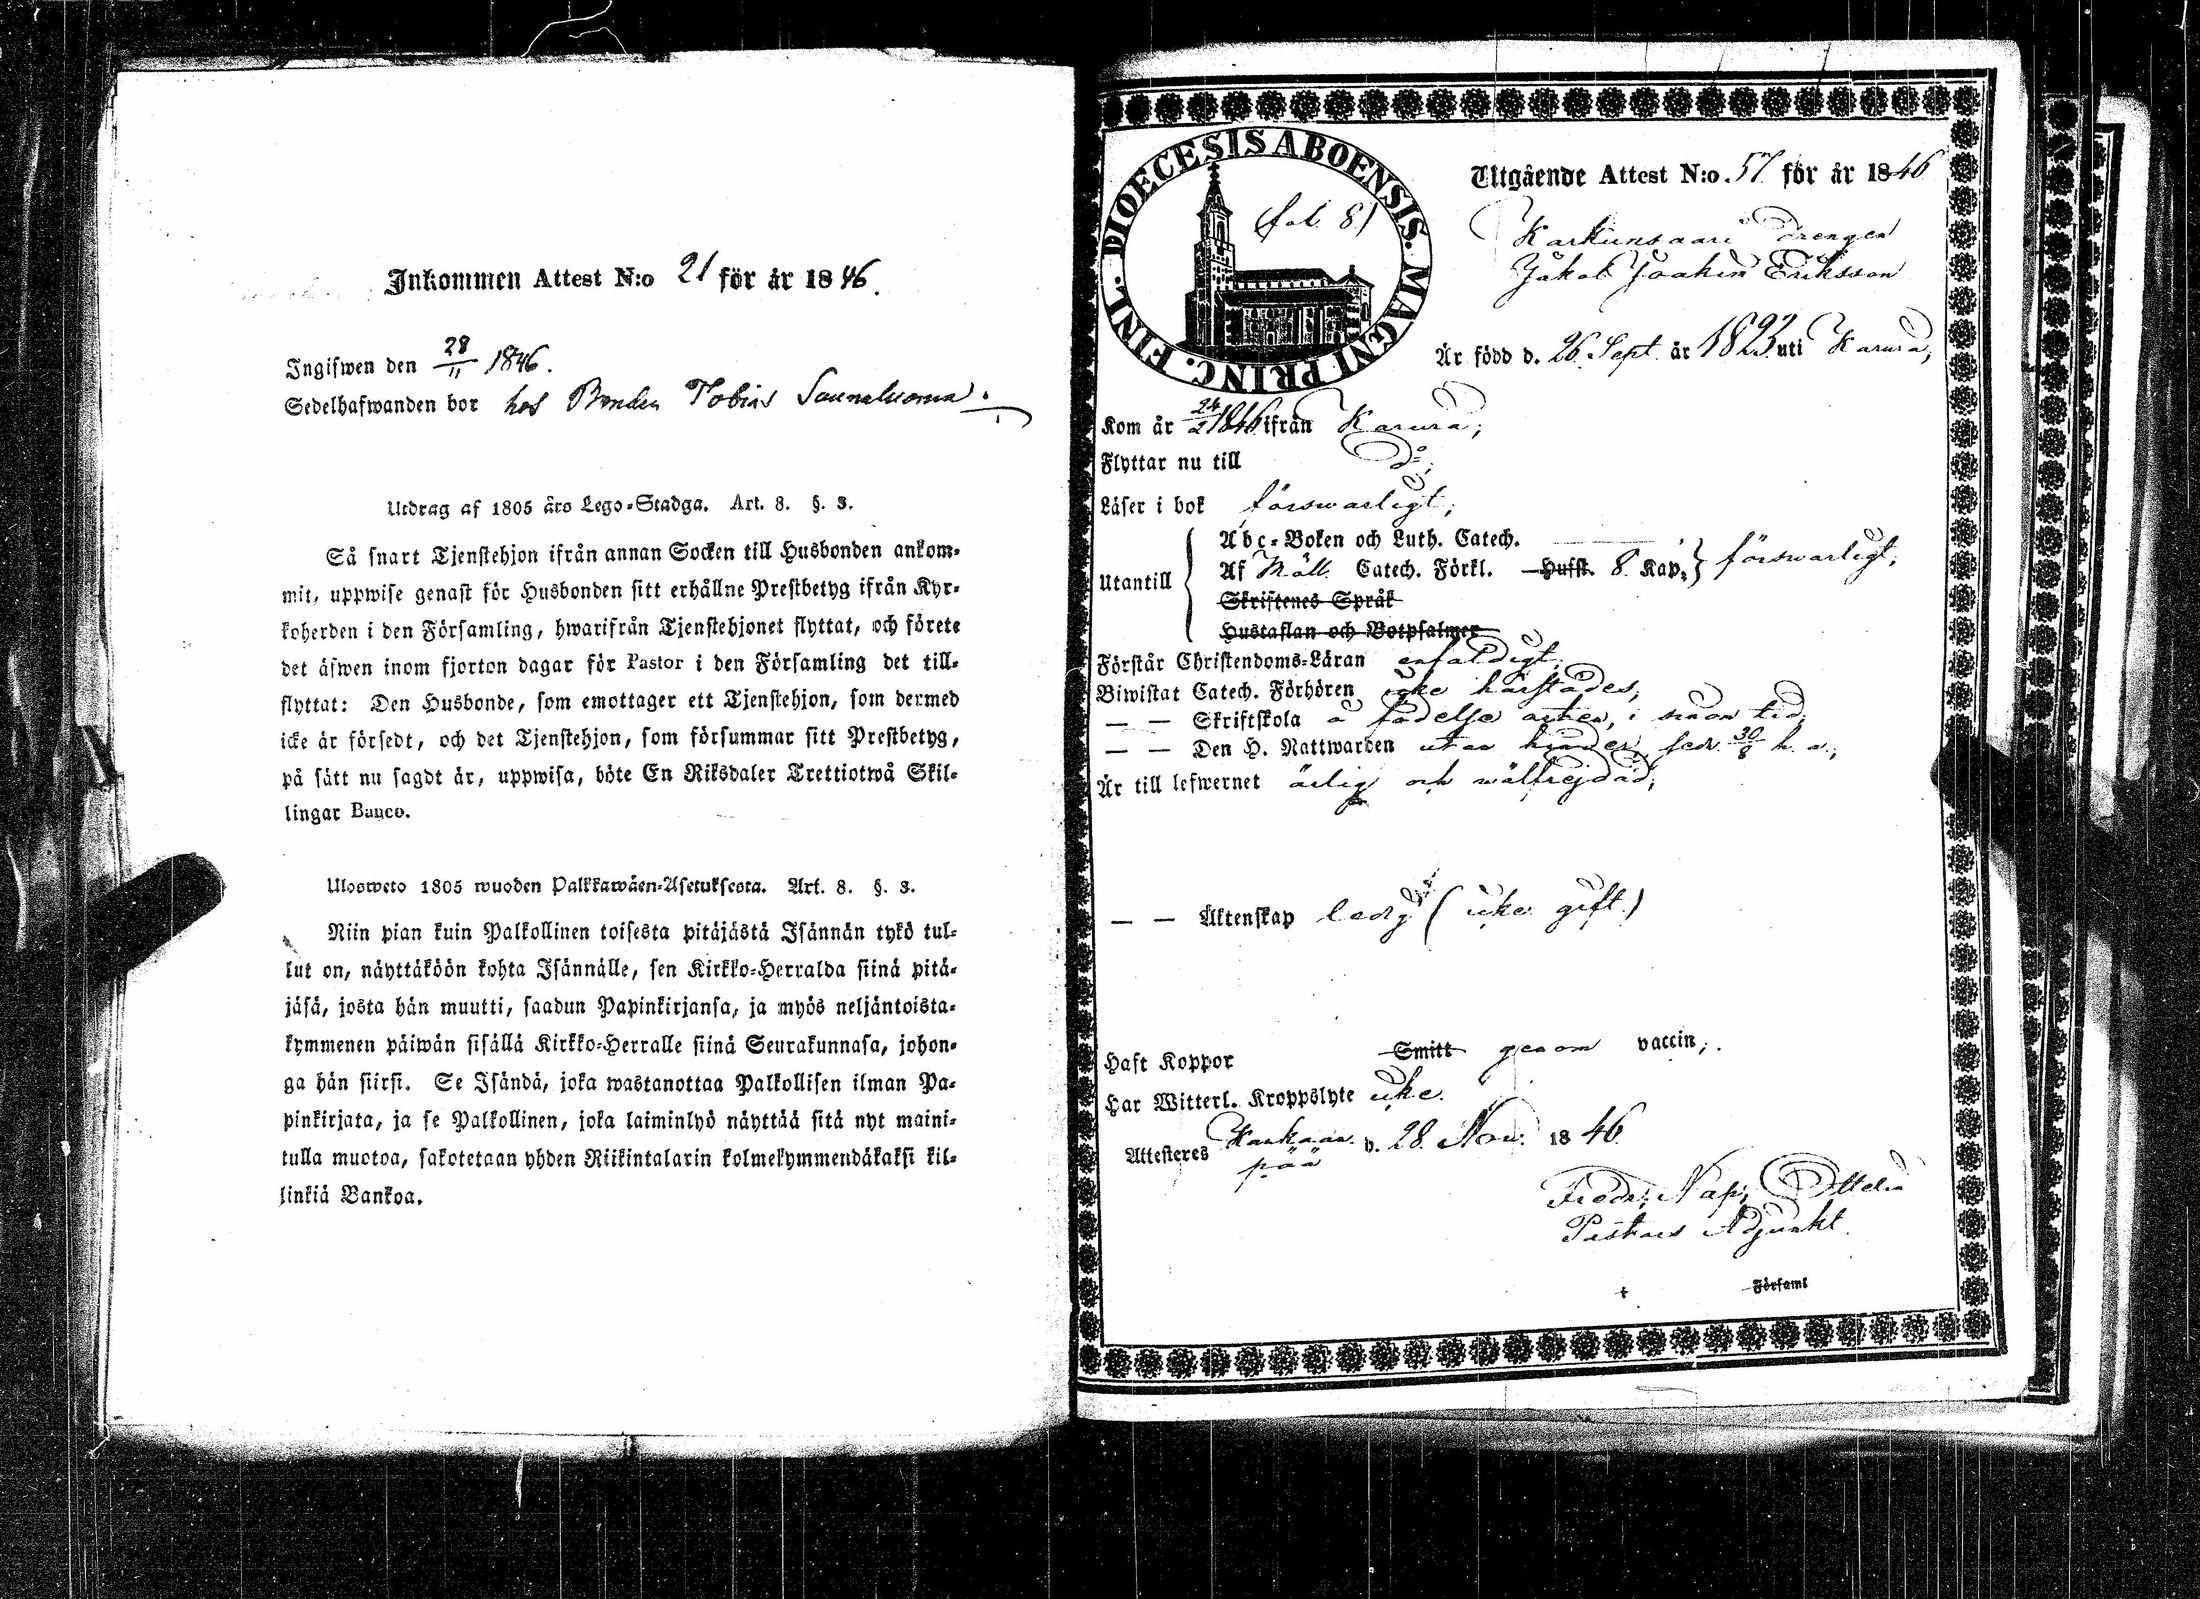 Inkommen Attest N:o 21 för år 1846.
Ingifwen den 28/11 1846.
Sedelhafwanden bor hos Bonden Tobias
Utdrag af 1805 års Lego-Stadga. Art. 8. §. 3.
Så snart Tjenstehjon ifrån annan Socken till Husbonden ankom-
mit, uppwise genast för Husbonden sitt erhållne Prestbetyg ifrån Kyr-
koherden i den Församling, hwarifrån Tjenstehjonet flyttat, och förete
det äfwen inom fjorton dagar för Pastor i den Församling det till-
flyttat: Den Husbonde, som emottager ett Tjenstehjon, som dermed
icke är försedt, och det Tjenstehjon, som försummar sitt Prestbetyg,
på sätt nu sagdt är, uppwisa, böte En Riksdaler Trettiotwå Skil-
lingar Banco.
Ulosweto 1805 wuoden Palkkawäen-Asetuksesta. Art. 8. §. 3.
Niin pian kuin Palkollinen toisesta pitäjästä Isännän tykö tul-
lut on, näyttäköön kohta Isännälle, sen Kirkko-Herralda siinä pitä-
jäsä, josta hän muutti, saadun Papinkirjansa, ja myös neljäntoista-
kymmenen päiwän sisällä Kirkko-Herralle siinä Seurakunnasa, johon-
ga hän siirsi. Se Isändä, joka wastanottaa Palkollisen ilman Pa-
pinkirjata, ja se Palkollinen, joka laiminlyö näyttää sitä nyt maini-
tulla muotoa, sakotetaan yhden Riikintalarin kolmekymmendäkaksi kil-
linkiä Bankoa.
DIOECESIS ABOENSIS. MAGNI PRINC. FINL.
(fol. 8)
Utgående Attest N:o 57 för år 1846
Karkunsaari Drengen
Jakob Joakim Eriksson
Är född d. 26. Sept. år 1823 uti Karuna,
Kom år 24/2 1846 ifrån Karuna;
Flyttar nu till Do;
Läser i bok förswarligt;
Utantill
Abc-Boken och Luth. Catech.
Af Möll. Catech. Förkl. Husst. 8. Kap. förswarligt;
Skriftenes Språk
Hustaflan och Botpsalmer
Förstår Christendoms-Läran enfaldigt;
Biwistat Catech. Förhören icke härstädes;
— — Skriftskola å födelse orten, i sinom tid;
— — Den H. Nattwarden utan hinder, sedn. 30/8 h. a.;
Är till lefwernet ärlig och wälfrejdad;
— — Äktenskap ledig (icke gift.)
Haft Koppor Smitt genom vaccin;
Har Witterl. Kroppslyte icke.
Attesteres d. 28. Nov. 1846.
Fredr. Nap.
Pastors Adjunkt.
Församl